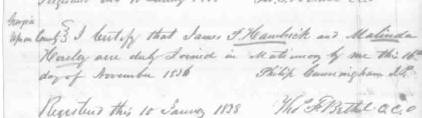 Georgia
Upson County } I Certify that James F Hambrick and Malinda
were duly Joined in Matimony by me this 16th
day of November 1836 Philip Cunningham J.P.
Registered this 10 January 1838 Thos F Bethel C.C.O